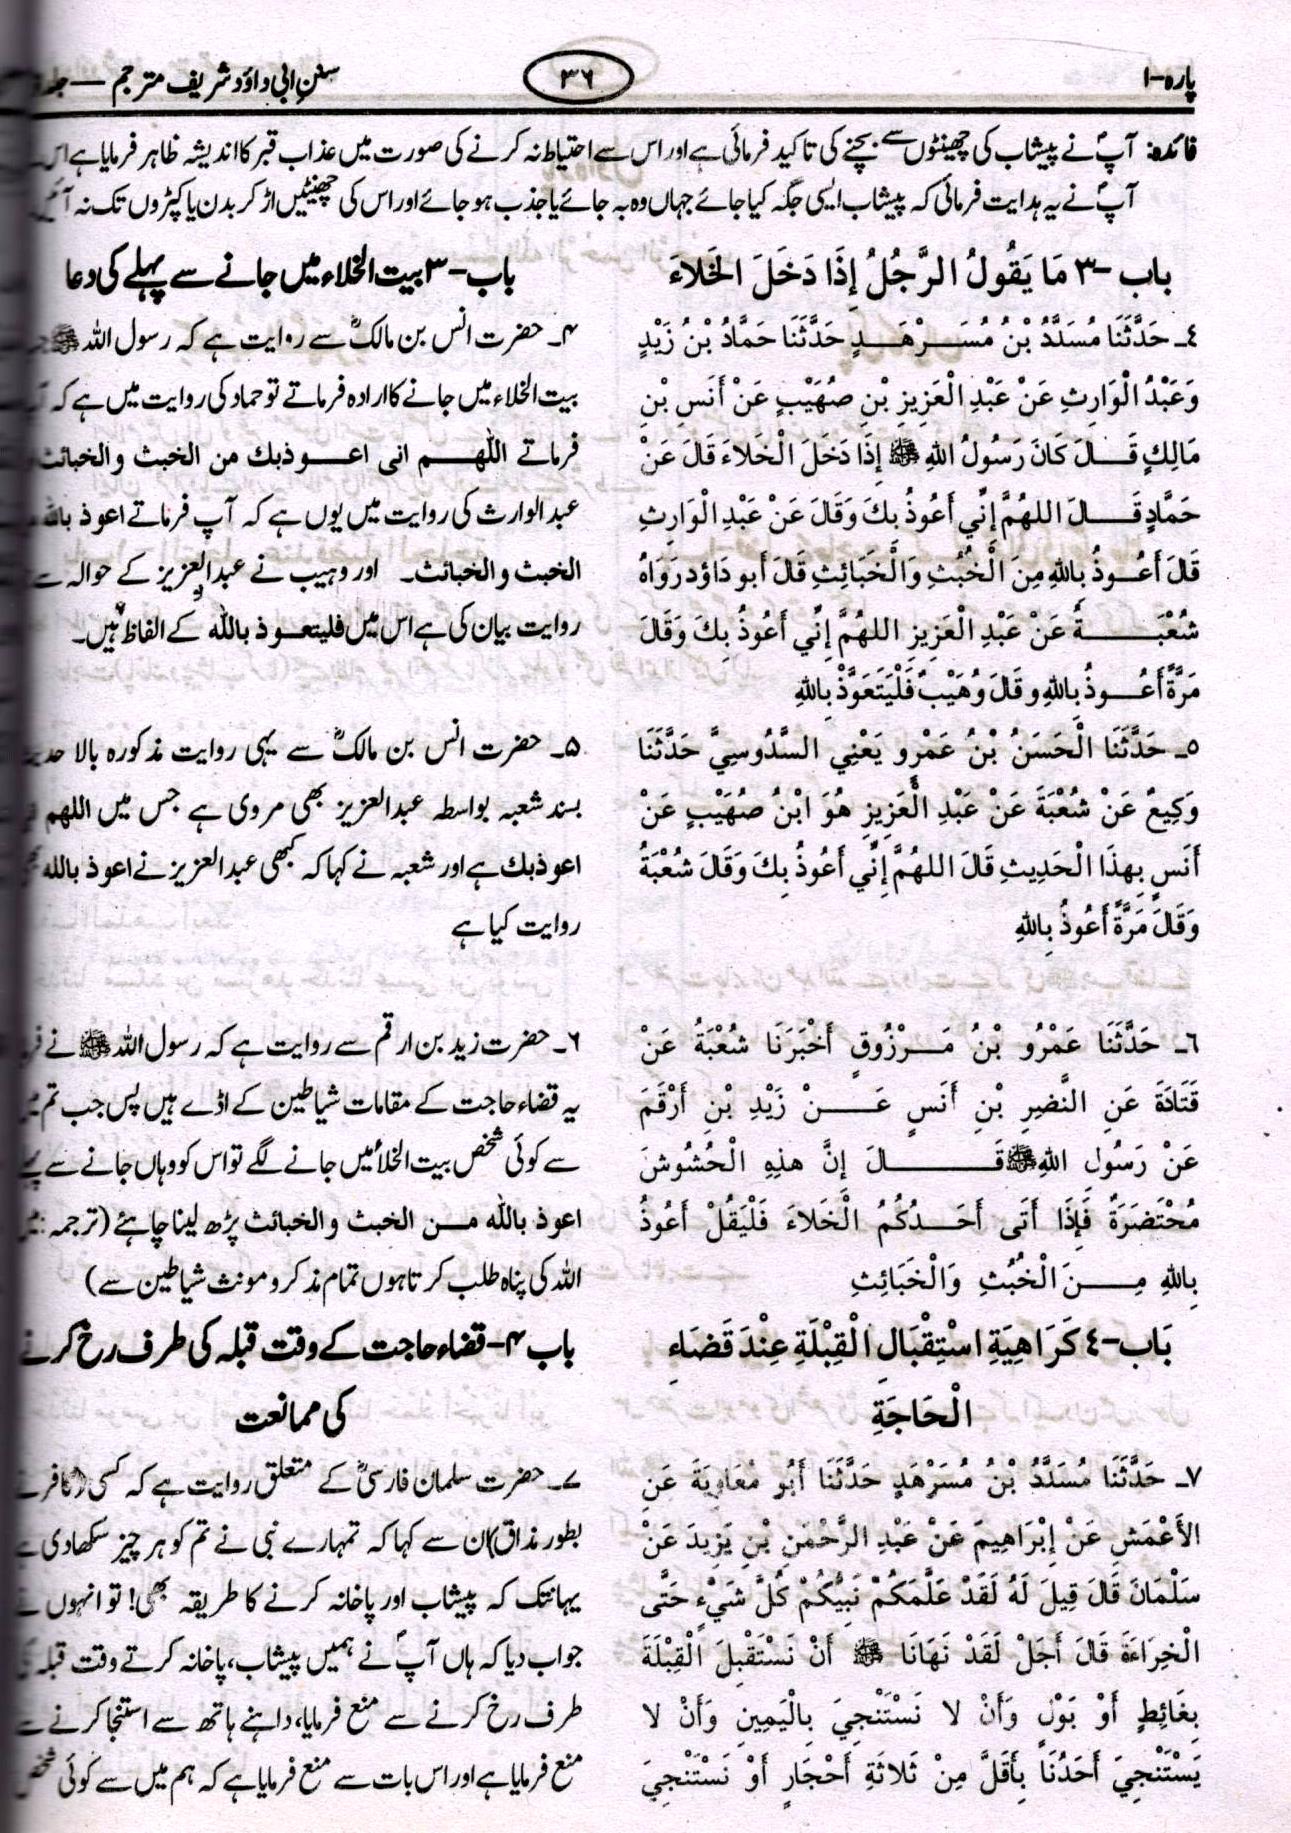 پارہ-۱
۳۶
سنن ابی داؤد شریف مترجم — جلد
فائدہ: آپؐ نے پیشاب کی چھینٹوں سے بچنے کی تاکید فرمائی ہے اور اس سے احتیاط نہ کرنے کی صورت میں عذاب قبر کا اندیشہ ظاہر فرمایا ہے اس
آپؐ نے یہ ہدایت فرمائی کہ پیشاب ایسی جگہ کیا جائے جہاں وہ بہ جائے یا جذب ہو جائے اور اس کی چھینٹیں اڑ کر بدن یا کپڑوں تک نہ آئیں
باب -۳ مَا يَقُولُ الرَّجُلُ إِذَا دَخَلَ الخَلاءَ
٤ـ حَدَّثَنَا مُسَدَّدُ بْنُ مُسَرْهَدٍ حَدَّثَنَا حَمَّادُ بْنُ زَيْدٍ
وَعَبْدُ الْوَارِثِ عَنْ عَبْدِ الْعَزِيزِ بْنِ صُهَيْبٍ عَنْ أَنَسِ بْنِ
مَالِكٍ قَالَ كَانَ رَسُولُ اللهِ ﷺ إِذَا دَخَلَ الْخَلاءَ قَالَ عَنْ
حَمَّادٍ قَالَ اللهُمَّ إِنِّي أَعُوذُ بِكَ وَقَالَ عَنْ عَبْدِ الْوَارِثِ
قَالَ أَعُوذُ بِاللهِ مِنَ الْخُبُثِ وَالْخَبَائِثِ قَالَ أبو دَاوُد رَوَاهُ
شُعْبَةُ عَنْ عَبْدِ الْعَزِيزِ اللهُمَّ إِنِّي أَعُوذُ بِكَ وَقَالَ
مَرَّةً أَعُوذُ بِاللهِ و قَالَ وُهَيْبٌ فَلْيَتَعَوَّذْ بِاللهِ
٥ـ حَدَّثَنَا الْحَسَنُ بْنُ عَمْرو يَعْنِي السَّدُوسِيَّ حَدَّثَنَا
وَكِيعٌ عَنْ شُعْبَةَ عَنْ عَبْدِ الْعَزِيزِ هُوَ ابْنُ صُهَيْبٍ عَنْ
أَنَسٍ بِهذَا الْحَدِيثِ قَالَ اللهُمَّ إِنِّي أَعُوذُ بِكَ وَقَالَ شُعْبَةُ
وَقَالَ مَرَّةً أَعُوذُ بِاللهِ
٦ـ حَدَّثَنَا عَمْرُو بْنُ مَرْزُوقٍ أَخْبَرَنَا شُعْبَةُ عَنْ
قَتَادَةَ عَنِ النَّضِيرِ بْنِ أَنَسٍ عَنْ زَيْدِ بْنِ أَرْقَمَ
عَنْ رَسُولِ اللهِ ﷺ قَالَ إِنَّ هذِهِ الْحُشُوشَ
مُحْتَضَرَةٌ فَإِذَا أَتَى أَحَدُكُمُ الْخَلاءَ فَلْيَقُلْ أَعُوذُ
بِاللهِ مِنَ الْخُبُثِ وَالْخَبَائِثِ
بَاب-٤ كَرَاهِيَةِ اسْتِقْبَالِ الْقِبْلَةِ عِنْدَ قَضَاءِ
الْحَاجَةِ
٧ـ حَدَّثَنَا مُسَدَّدُ بْنُ مُسَرْهَدٍ حَدَّثَنَا أَبُو مُعَاوِيَةَ عَنِ
الأَعْمَشِ عَنْ إِبْرَاهِيمَ عَنْ عَبْدِ الرَّحْمَنِ بْنِ يَزِيدَ عَنْ
سَلْمَانَ قَالَ قِيلَ لَهُ لَقَدْ عَلَّمَكُمْ نَبِيُّكُمْ كُلَّ شَيْءٍ حَتَّى
الْخِرَاءَةَ قَالَ أَجَلْ لَقَدْ نَهَانَا ﷺ أَنْ نَسْتَقْبِلَ الْقِبْلَةَ
بِغَائِطٍ أَوْ بَوْلٍ وَأَنْ لا نَسْتَنْجِيَ بِالْيَمِينِ وَأَنْ لا
يَسْتَنْجِيَ أَحَدُنَا بِأَقَلَّ مِنْ ثَلاثَةِ أَحْجَارٍ أَوْ نَسْتَنْجِيَ
باب-۳ بیت الخلاء میں جانے سے پہلے کی دعا
۴۔ حضرت انس بن مالکؓ سے روایت ہے کہ رسول اللہ ﷺ
بیت الخلاء میں جانے کا ارادہ فرماتے تو حماد کی روایت میں ہے کہ
فرماتے اللّٰهم انی اعوذبك من الخبث والخبائث
عبدالوارث کی روایت میں یوں ہے کہ آپ فرماتے اعوذ بالله
الخبث والخبائث۔ اور وہیب نے عبدالعزیز کے حوالہ سے
روایت بیان کی ہے اس میں فلیتعوذ بالله کے الفاظ ہیں۔
۵۔ حضرت انس بن مالکؓ سے یہی روایت مذکورہ بالا حدیث
بسند شعبہ بواسطہ عبدالعزیز بھی مروی ہے جس میں اللهم
اعوذبك ہے اور شعبہ نے کہا کہ کبھی عبدالعزیز نے اعوذ بالله
روایت کیا ہے
۶۔ حضرت زید بن ارقم سے روایت ہے کہ رسول اللہ ﷺ نے
یہ قضاء حاجت کے مقامات شیاطین کے اڈے ہیں پس جب تم
سے کوئی شخص بیت الخلاء میں جانے لگے تو اس کو وہاں جانے سے
اعوذ بالله من الخبث والخبائث پڑھ لینا چاہئے (ترجمہ:
اللہ کی پناہ طلب کرتا ہوں تمام مذکر و مونث شیاطین سے)
باب ۴- قضاء حاجت کے وقت قبلہ کی طرف رخ کرنے
کی ممانعت
۷۔ حضرت سلمان فارسیؓ کے متعلق روایت ہے کہ کسی (کافر نے
بطور مذاق) ان سے کہا کہ تمہارے نبی نے تم کو ہر چیز سکھا دی ہے
یہانتک کہ پیشاب اور پاخانہ کرنے کا طریقہ بھی! تو انہوں نے
جواب دیا کہ ہاں آپؐ نے ہمیں پیشاب، پاخانہ کرتے وقت قبلہ کی
طرف رخ کرنے سے منع فرمایا، داہنے ہاتھ سے استنجا کرنے سے
منع فرمایا ہے اور اس بات سے منع فرمایا ہے کہ ہم میں سے کوئی شخص